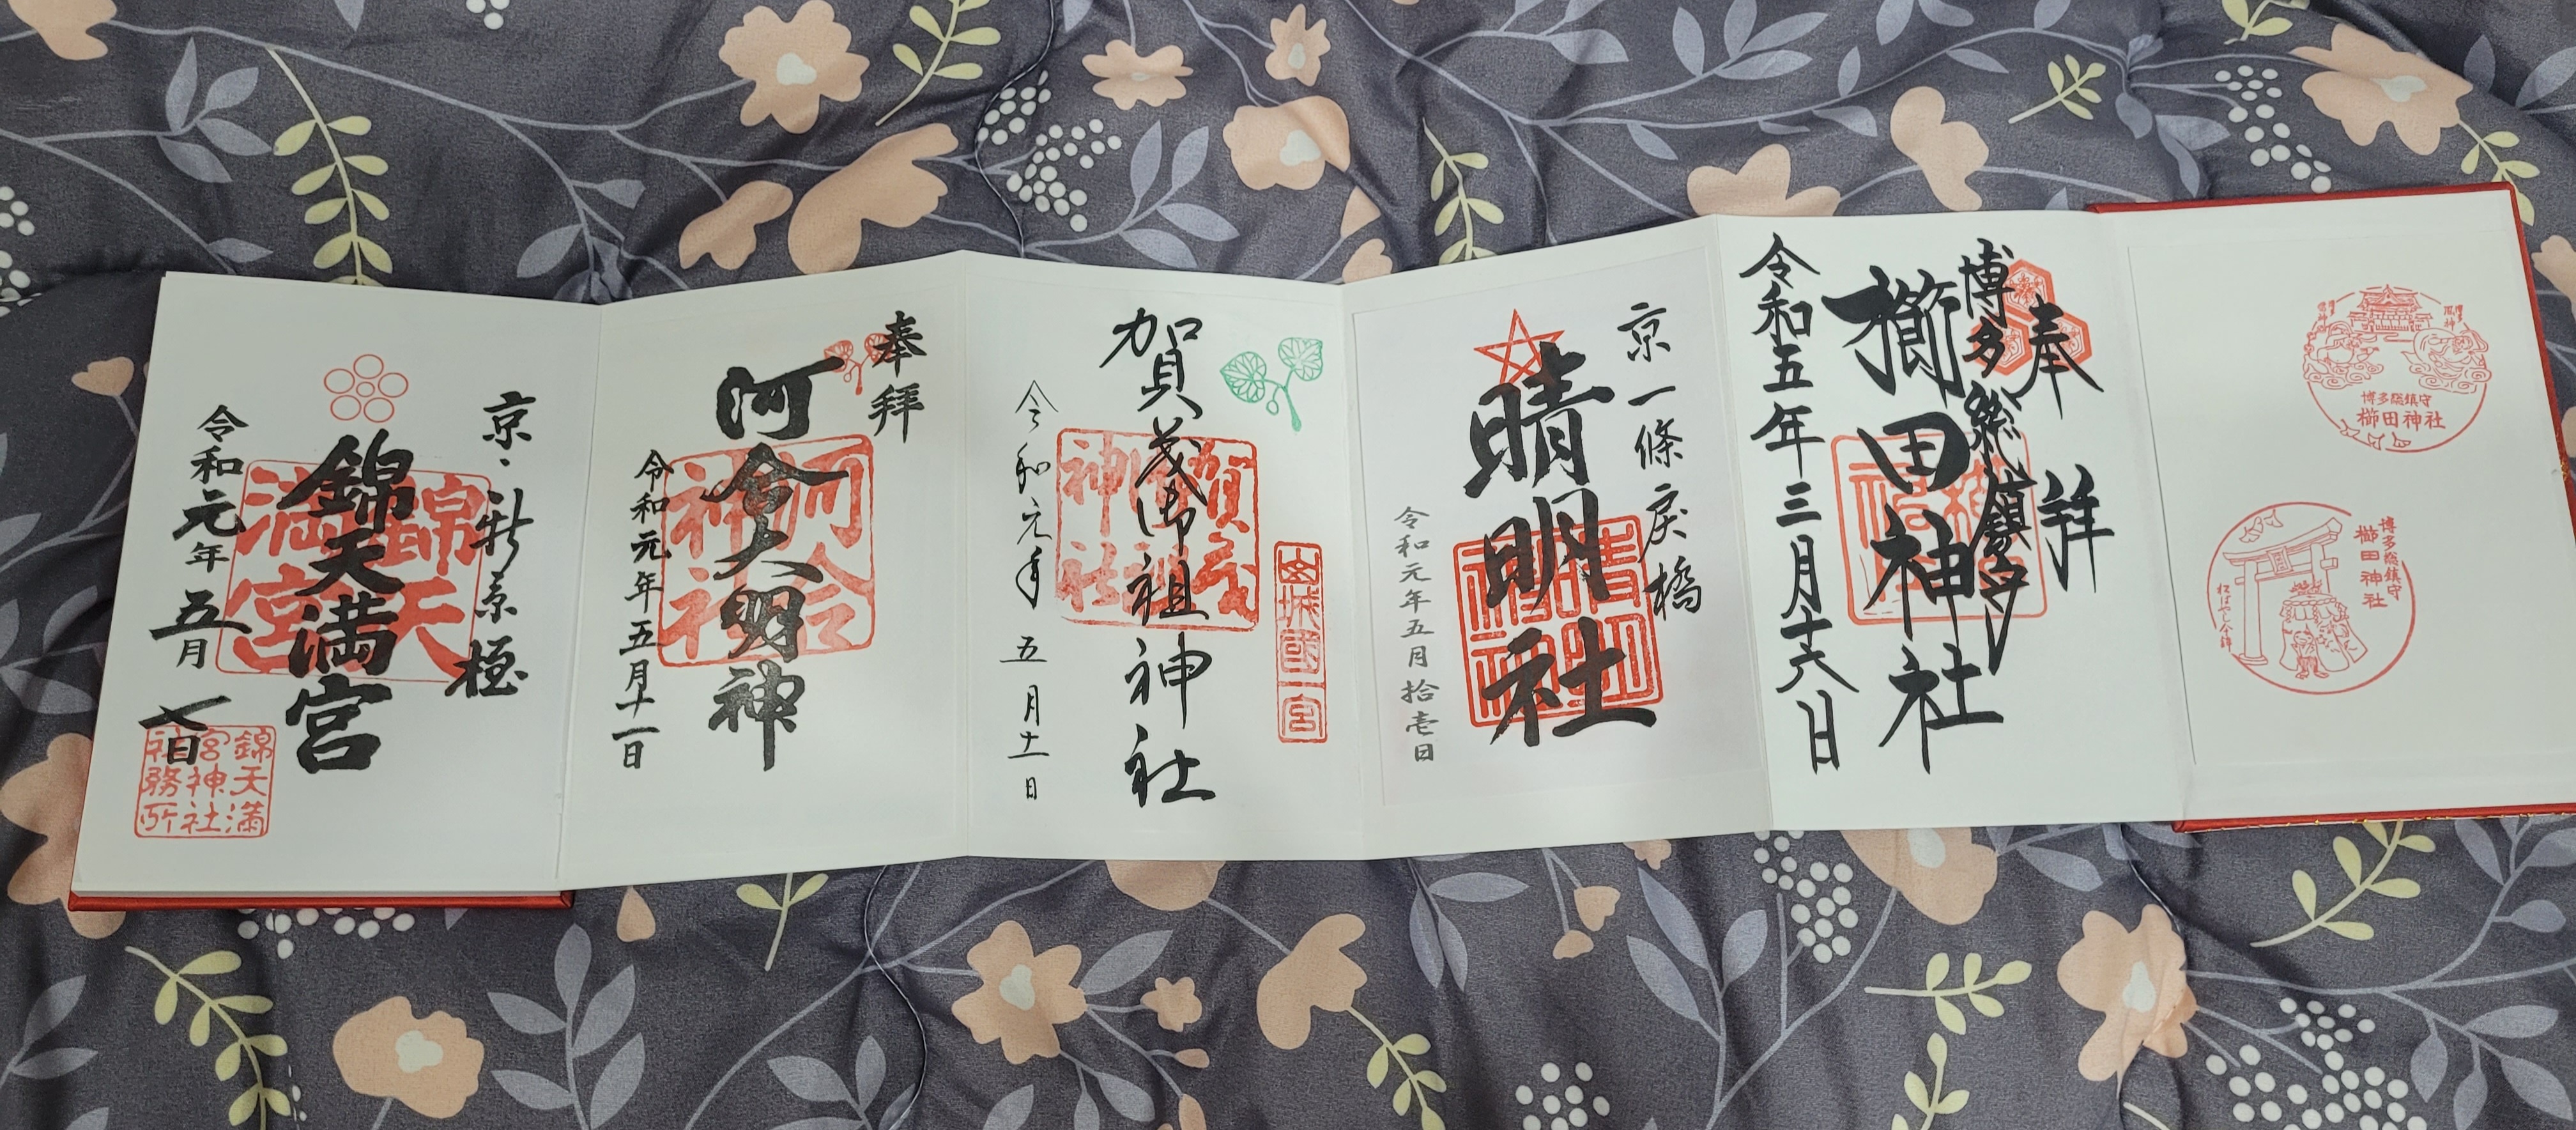 京・新京極
錦天満宮
令和元年五月七日
錦天満宮
錦天満宮神社社務所
奉拝
河合大明神
令和元年五月十一日
河合神社
賀茂御祖神社
令和元年五月十一日
賀茂御祖神社
山城國一宮
京一條戻橋
晴明社
令和元年五月拾壱日
奉拝
博多総鎮守
櫛田神社
令和五年三月十六日
博多総鎮守
櫛田神社
博多総鎮守
櫛田神社